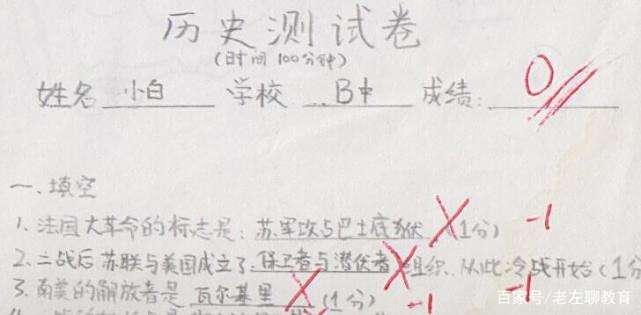 历史测试卷
(时间 100分钟)
姓名 小白 学校 B中 成绩: 0
一.填空
1.法国大革命的标志是: 苏军攻占巴士底狱 (1分) -1
2.二战后苏联与美国成立了 保卫者与潜伏者 组织.从此冷战开始(1分
3.南美的解放者是 瓦尔基里 (1分) -1 -1
百家号/老左聊教育